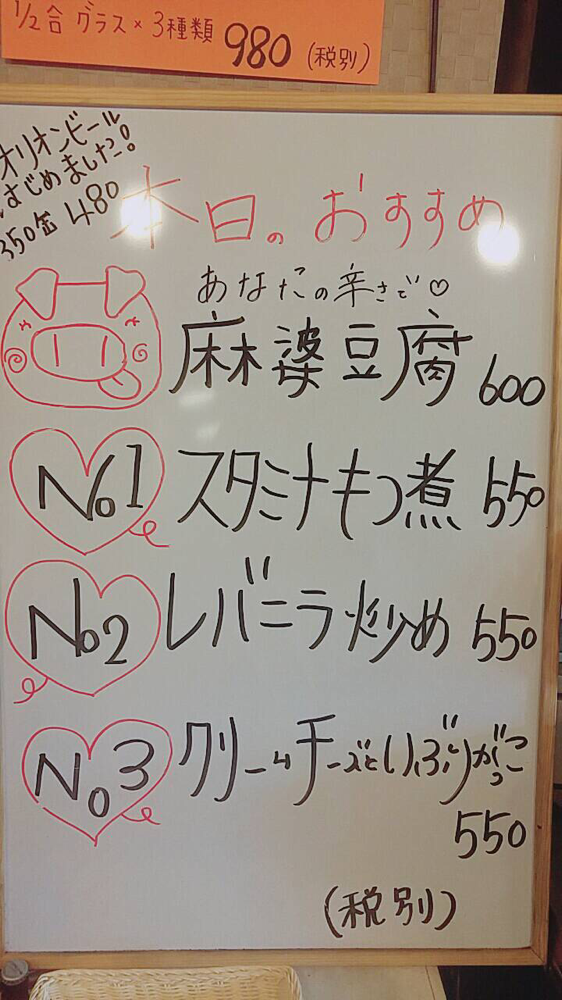 1/2合 グラス×3種類 980 (税別)
オリオンビール
はじめました!
350缶 480
本日のおすすめ
あなたの辛さで♡
麻婆豆腐 600
No1 スタミナもつ煮 550
No2 レバニラ炒め 550
No3 クリームチーズといぶりがっこ
550
(税別)